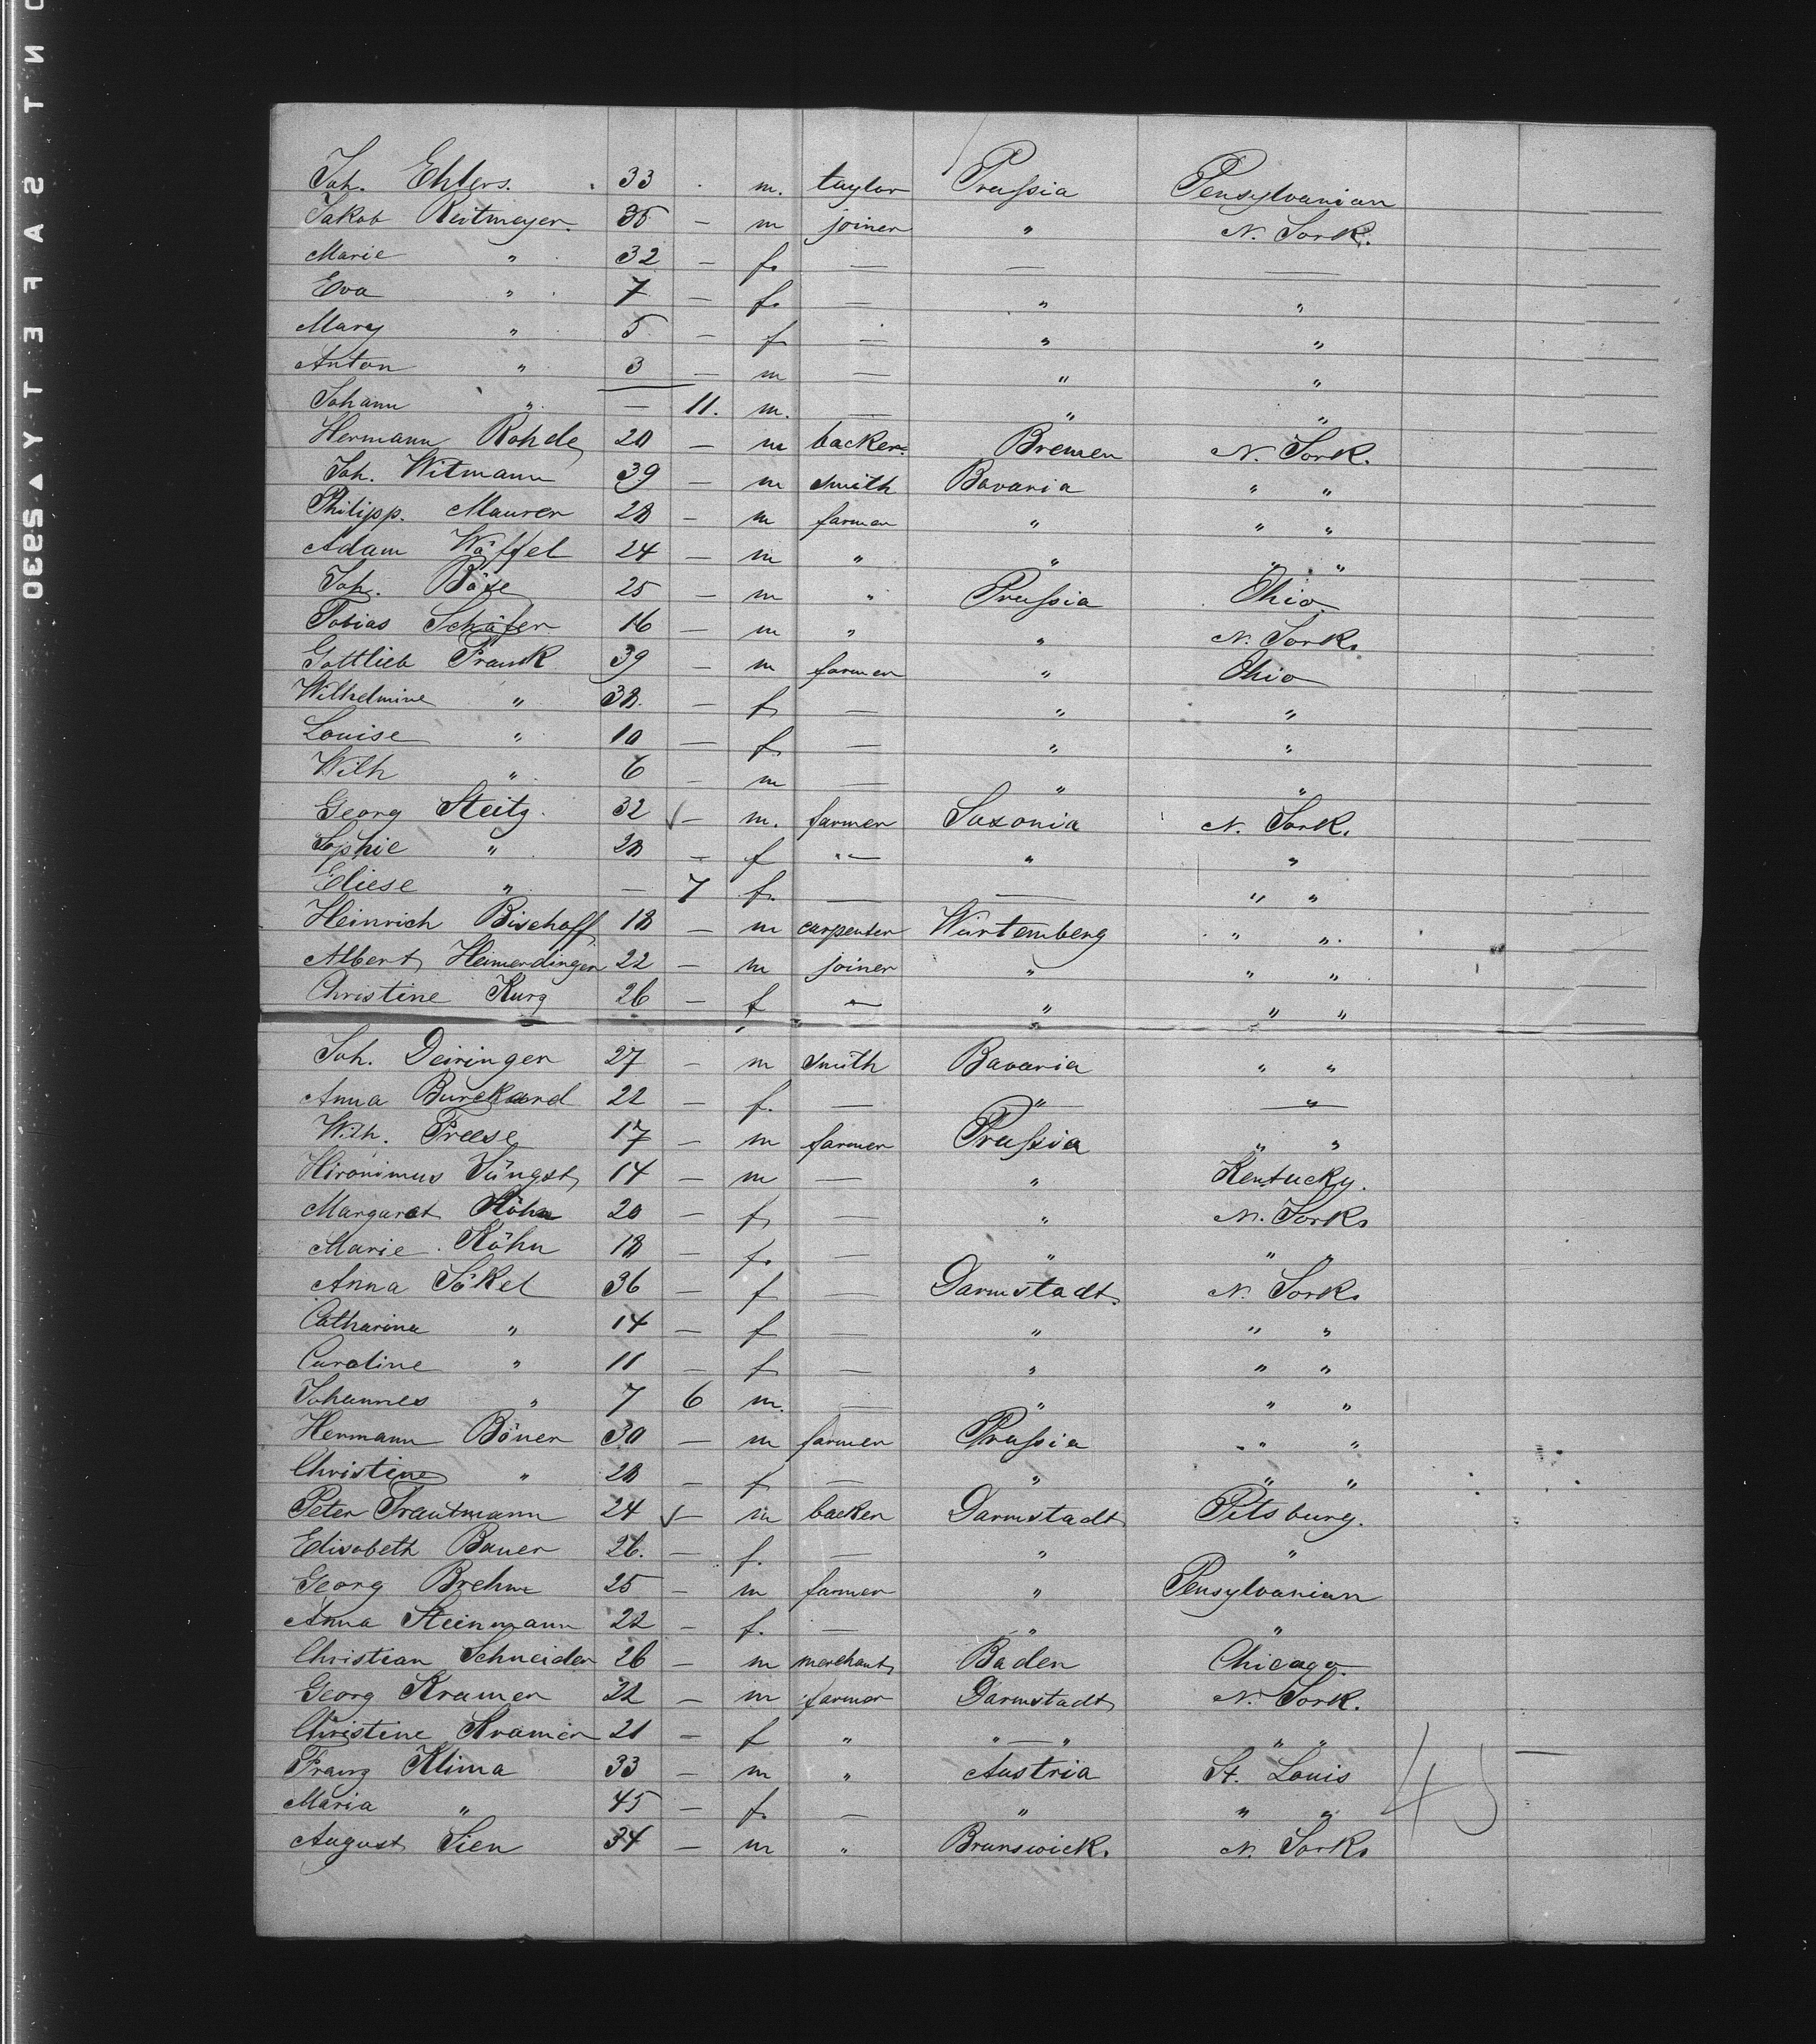 Joh. Ehlers. 33 m. taylor Prussia Pensylvanian
Jakob Reitmeyer. 35 — m joiner " N. York.
Marie " 32 — f. — — —
Eva " 7 — f. — " "
Mary " 5 — f — " "
Anton " 3 — m — " "
Johann " — 11. m. — " "
Hermann Rohde 20 — m backer Bremen N. York.
Joh. Witmann 39 — m smith Bavaria " "
Philipp. Maurer 28 — m farmer " " "
Adam Wäffel 24 — m " " " "
Joh. Böse 25 — m " Prussia Ohio
Tobias Schäfer 16 — m " " N. York.
Gottlieb Frank 39 — m farmer " Ohio
Wilhelmine " 38 — f — " "
Louise " 10 — f — " "
Wilh " 6 — m — " "
Georg Steitz. 32 — m. farmer Saxonia N. York.
Sophie " 28 — f " — " "
Eliese " — 7 f. — — " "
Heinrich Bischoff 18 — m carpenter Würtemberg " "
Albert Heimerdinger 22 — m joiner " " "
Christine Kurz 26 — f — " " "
Joh. Deiringer 27 — m smith Bavaria " "
Anna Burckard 22 — f. — " "
Wilh. Freese 17 — m farmer Prussia " "
Hironimus Jüngst 14 — m — " Kentucky.
Margaret Höhn 20 — f — " N. York.
Marie Köhn 18 — f. — " " "
Anna Jökel 36 — f — Darmstadt. N. York.
Catharina " 14 — f — " " "
Caroline " 11 — f — " " "
Johannes " 7 6 m. — " " "
Hermann Böner 30 — m farmer Prussia " "
Christine " 28 — f — " " "
Peter Trautmann 24 — m backer Darmstadt Pitsburg.
Elisabeth Bauer 26. — f. — " "
Georg Brehm 25 — m farmer " Pensylvanian
Anna Steinmann 22 — f. — " "
Christian Schneider 26 — m merchant Baden Chicago.
Georg Kramer 22 — m farmer Darmstadt N. York.
Christine Kramer 21 — f " " — " " "
Franz Klima 33 — m " Austria St. Louis
Maria " 45 — f. — " " "
August Sien 34 — m " Brunswick. N. York.
45 —
SAFETY▲5930